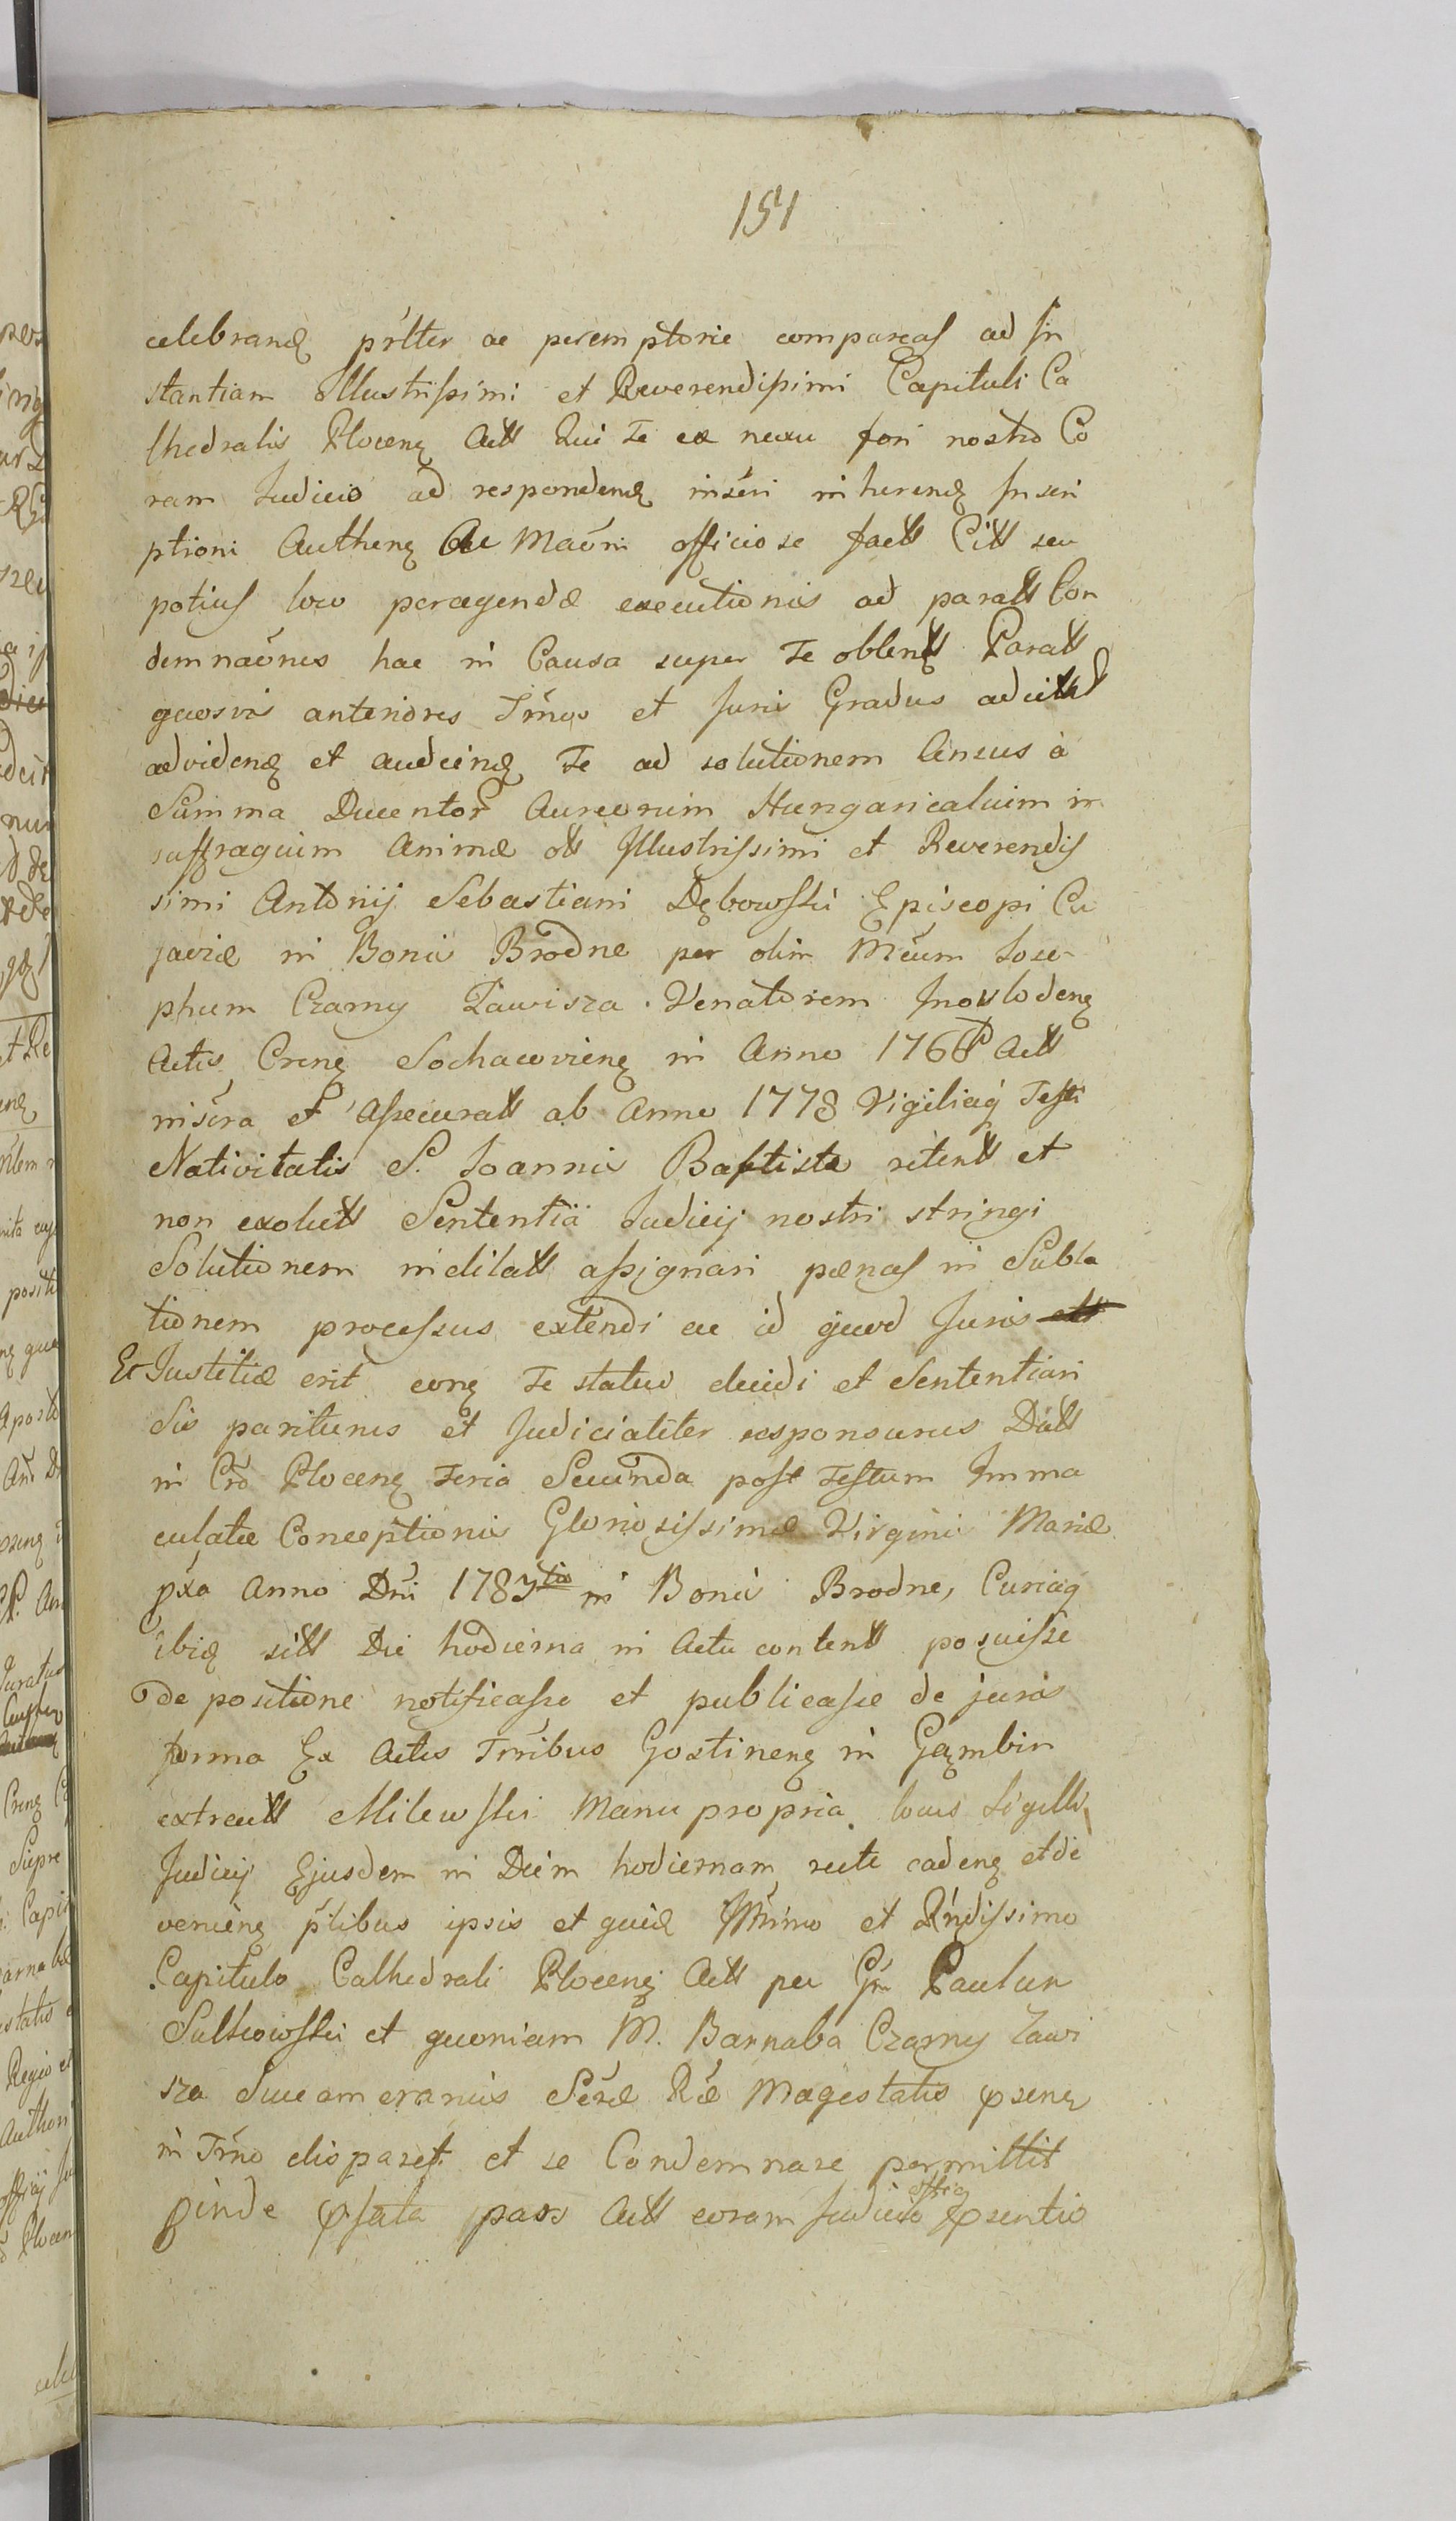 151
celebranꝫ prĺter ac peremptorie compareas ad In
stantiam Illustrissimi et Reverendissimi Capituli Ca
thedralis Plocenꝫ Actt Qui Te ex nexu fori nostro Co
ram Judicio ad respondenꝫ inseri inherenꝫ Inscri
ptioni Authenꝫ Ac Maōni officiose factt Citt seu
potius loco peragendæ executionis ad paratt Con
demnaōnes hac in Causa super Te obtentt Paratt
quosvis anteriores Trm̃os et Juris Gradus ad
ad videnꝫ et audienꝫ Te ad solutionem Census à
Summa Ducentor Aureorum Hungaricalium in
suffragium Animæ ott Illustrissimi et Reverendis
simi Antonij Sebastiani Dębowski Episcopi Cu
javiæ in Bonis Brodne per olim Mc̃um Jose-
phum Czarny Zawisza Venatorem Inovlodenꝫ
Actis Crenꝫ Sochacovienꝫ in Anno 1766 Actt
inscra et Assecuratt ab Anno 1778 Vigiliaq́ Festi
Nativitatis S. Joannis Baptistæ retentt et
non exolutt Sententiä Judicij nostri stringi
Solutionem indilatt assignari pænas in Subla
tionem processus extendi ac id quod Juris
Et Justitiæ erit corꝫ Te statuo decidi et Sententiari
Sis pariturus et Judicialiter responsurus Datt
in Crõ Plocenꝫ Feria Secunda post Festum Imma
culatæ Conceptionis Gloriosissimæ Virginis Mariæ
pxa Anno Dńi 1783tio in Bonis Brodne, Curiaq
ibiꝫ sitt Die hodierna in Actu contentt posuisse
de positione notificasse et publicasse de juris
forma Ex Actis Trr̃ibus Gostinenꝫ in Gąmbin
extractt Milewski Manu propria. locus Sigilli
Judicij Ejusdem in Diem hodiernam recte cadenꝫ et de
venienꝫ ptibus ipsis et quid Illmo et Rńdissimo
Capitulo Cathedrali Plocenꝫ Actt per Gń Paulum
Sulkowski et quoniam M. Barnaba Czarny Zawi
sza Succamerarius Seræ Ræ Magestatis pseńꝫ
in Trm̃o disparet et se Condemnare permittit
proinde psata pars Actt coram Judicio offiꝫ psentio